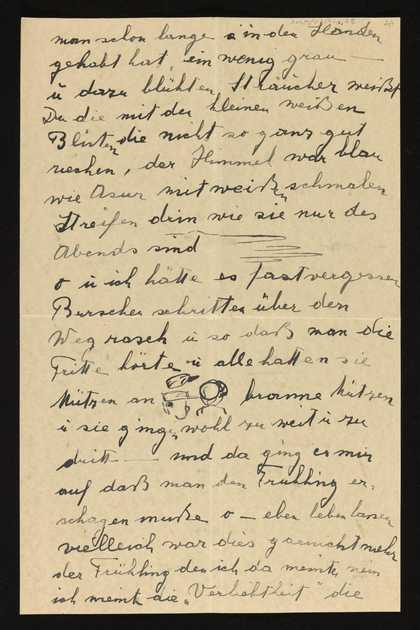 man schon lange in den Händen
gehabt hat, ein wenig grau —
u dazu blühten Sträucher weißt
Du die mit den kleinen weißen
Blüten die nicht so ganz gut
riechen, der Himmel war blau
wie Asur mit weißen schmalen
Streifen drin wie sie nur des
Abends sind
o u ich hätte es fast vergessen
Burschen schritten über den
Weg rasch u so daß man die
Tritte hörte u alle hatten sie
Mützen an braune Mützen
u sie gingen wohl zu weit u zu
dritt — und da ging es mir
auf daß man den Frühling er-
schagen muße o — eben leben lassen
vielleich war dies garnicht mehr
der Frühling den ich da meinte nein
ich meinte die „Verliebtheit" die